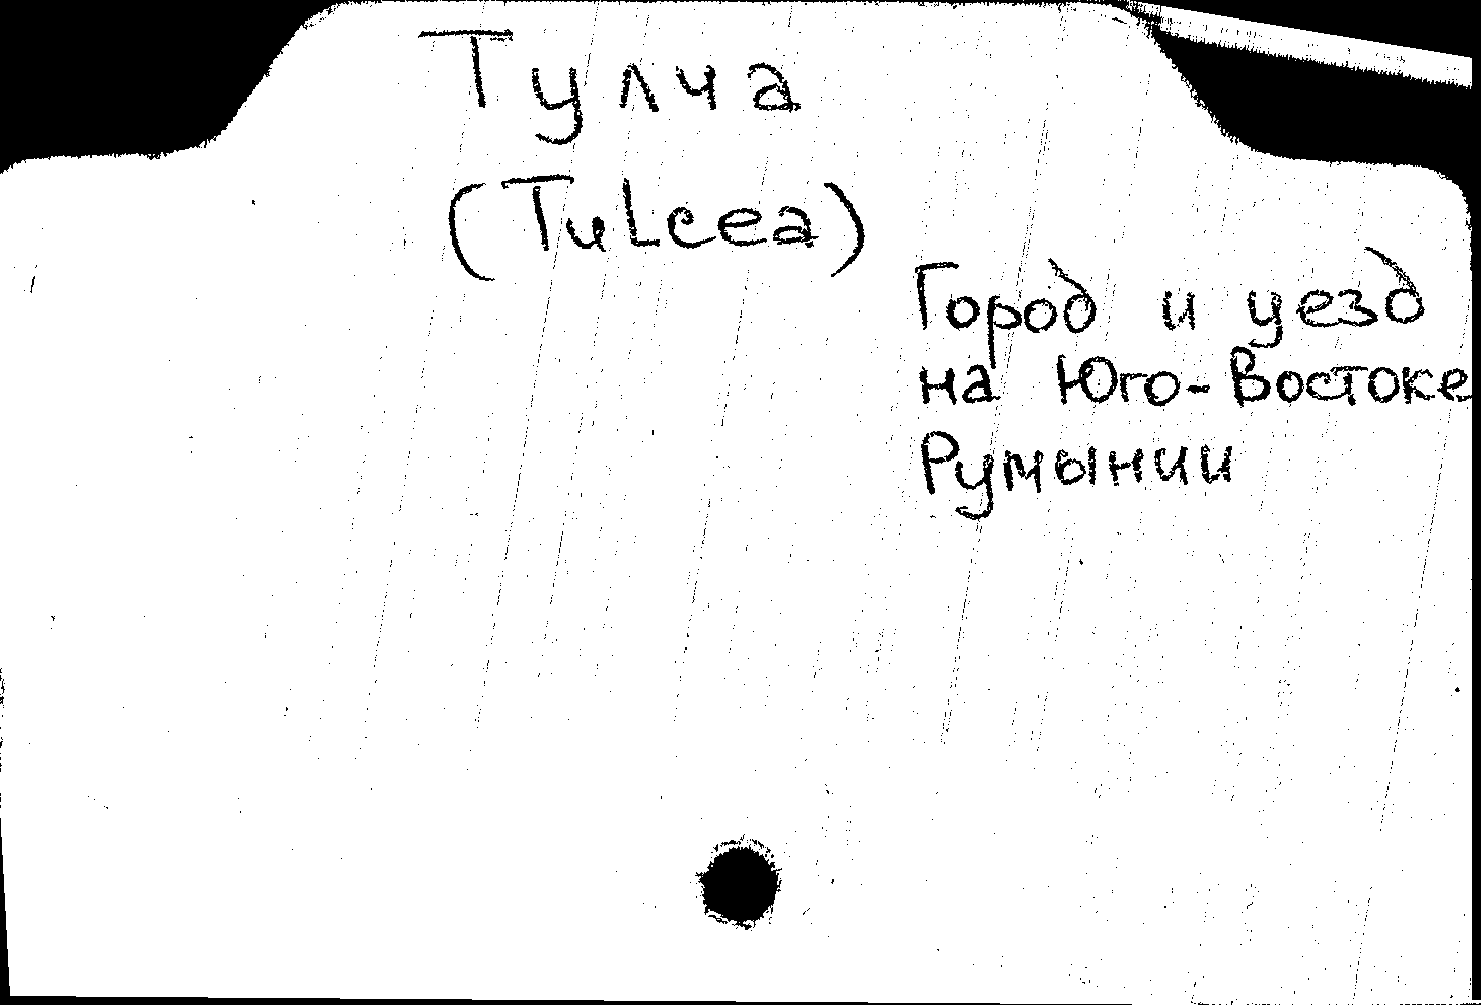 Тулча
(Tulcea)
Город и уезд
на Юго-Востоке
Румынии